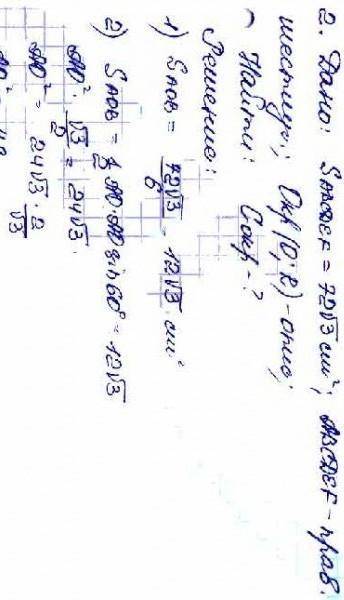 2. Дано: SABCDEF = 72√3 см²; ABCDEF – прав.
шестиуг; Окр(O; R) – опис;
Найти: Cокр – ?
Решение:
1) SAOB = 72√3/6 = 12√3 см²
2) SAOB = 1/2 AO·AO sin60° = 12√3
AO² · √3/2 = 24√3.
AO² = 24√3·2/√3